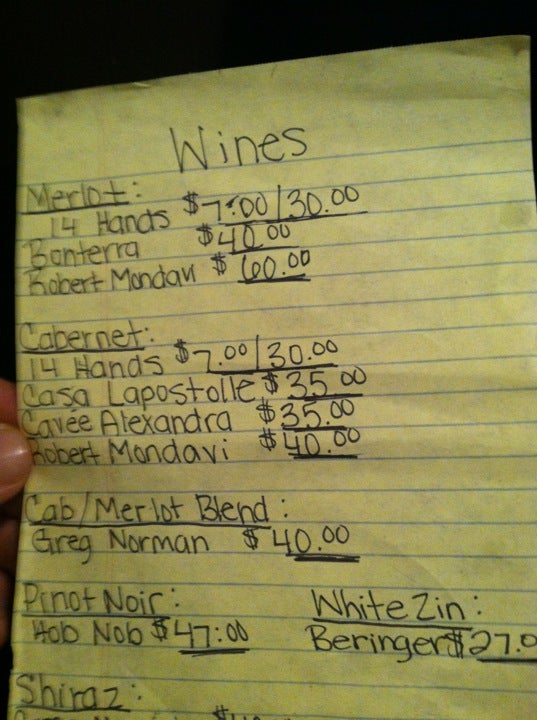 Wines
Merlot:
14 Hands $7.00/30.00
Bonterra $40.00
Robert Mondavi $60.00
Cabernet:
14 Hands $7.00/30.00
Casa Lapostolle $35.00
Cavée Alexandra $35.00
Robert Mondavi $40.00
Cab/Merlot Blend:
Greg Norman $40.00
Pinot Noir:
Hob Nob $47:00
White Zin:
Beringer $27.0
Shiraz: